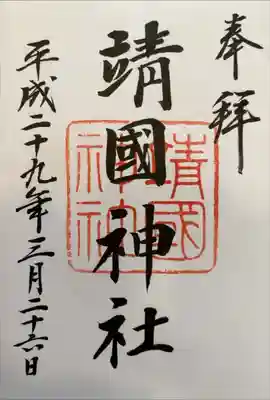 奉拝
靖國神社
靖國
神社
平成二十九年三月二十六日